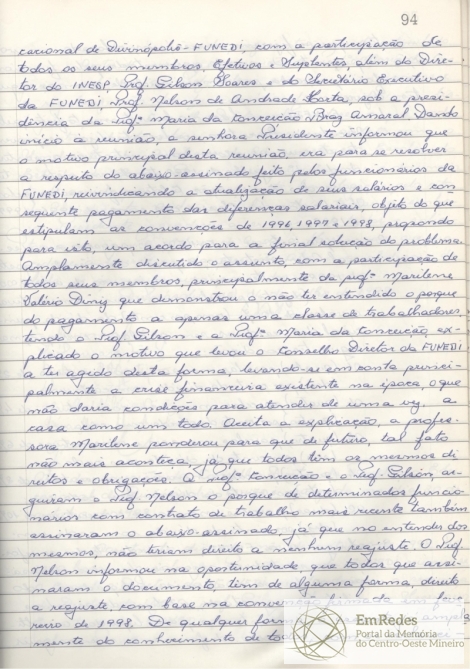 94
cacional de Divinópolis-FUNEDI, com a participação de
todos os seus membros, Efetivos e Suplentes, além do Dire-
tor do INESP, Prof. Gilson Soares e do Secretário Executivo
da FUNEDI, Prof. Nelson de Andrade Horta, sob a presi-
dência da Profª Maria da Conceição Braz Amaral. Dando
início à reunião, a senhora Presidente informou que
o motivo principal desta reunião, era para se resolver
a respeito do abaixo-assinado feito pelos funcionários da
FUNEDI, reivindicando a atualização de seus salários e con-
seguinte pagamento das diferenças salariais, objeto do que
estipulam as convenções de 1996, 1997 e 1998, propondo
para isto, um acordo para a final solução do problema.
Amplamente discutido o assunto, com a participação de
todos seus membros, principalmente da profª Marilene
Valério Diniz que demonstrou o não ter entendido o porque
do pagamento a apenas uma classe de trabalhadores,
tendo o Prof. Gilson e a Profª Maria da Conceição, ex-
plicado o motivo que levou o Conselho Diretor da FUNEDI
a ter agido desta forma, levando-se em conta princi-
palmente a crise financeira existente na época, o que
não daria condições para atender de uma vez a
casa como um todo. Aceita a explicação, a profes-
sora Marilene ponderou para que de futuro, tal fato
não mais aconteça, já que todos têm os mesmos di-
reitos e obrigações. A Profª Conceição e o Prof. Gilson, ar-
guiram o Prof. Nelson o porque de determinados funcio-
nários com contrato de trabalho mais recente também
assinaram o abaixo-assinado, já que no entender dos
mesmos, não teriam direito a nenhum reajuste. O Prof.
Nelson informou na oportunidade, que todos que assi-
naram o documento, têm de alguma forma, direito
a reajuste, com base na convenção firmada em feve-
reiro de 1998. De qualquer forma
mente do conhecimento de
EmRedes
Portal da Memória
do Centro-Oeste Mineiro